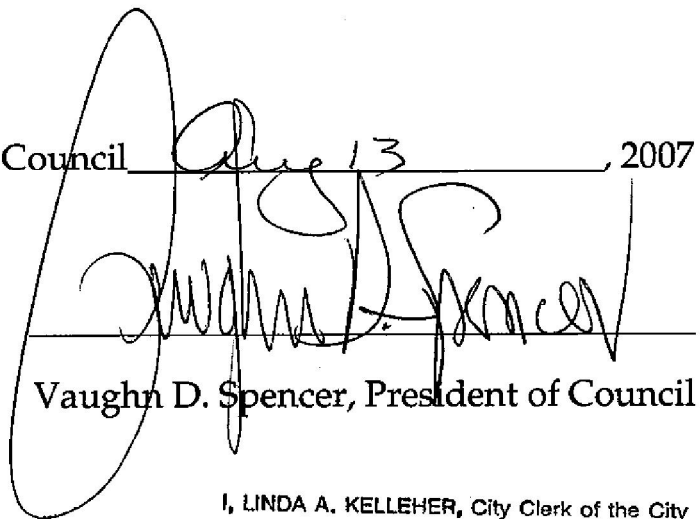 Council Aug 13, 2007
Vaughn D. Spencer
Vaughn D. Spencer, President of Council
I, LINDA A. KELLEHER, City Clerk of the City